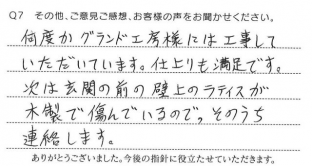 Q7 その他、ご意見ご感想、お客様の声をお聞かせください。
何度かグランド工房様には工事して
いただいています。仕上りも満足です。
次は玄関の前の壁上のラティスが
木製で傷んでいるので、そのうち
連絡します。
ありがとうございました。今後の指針に役立たせていただきます。